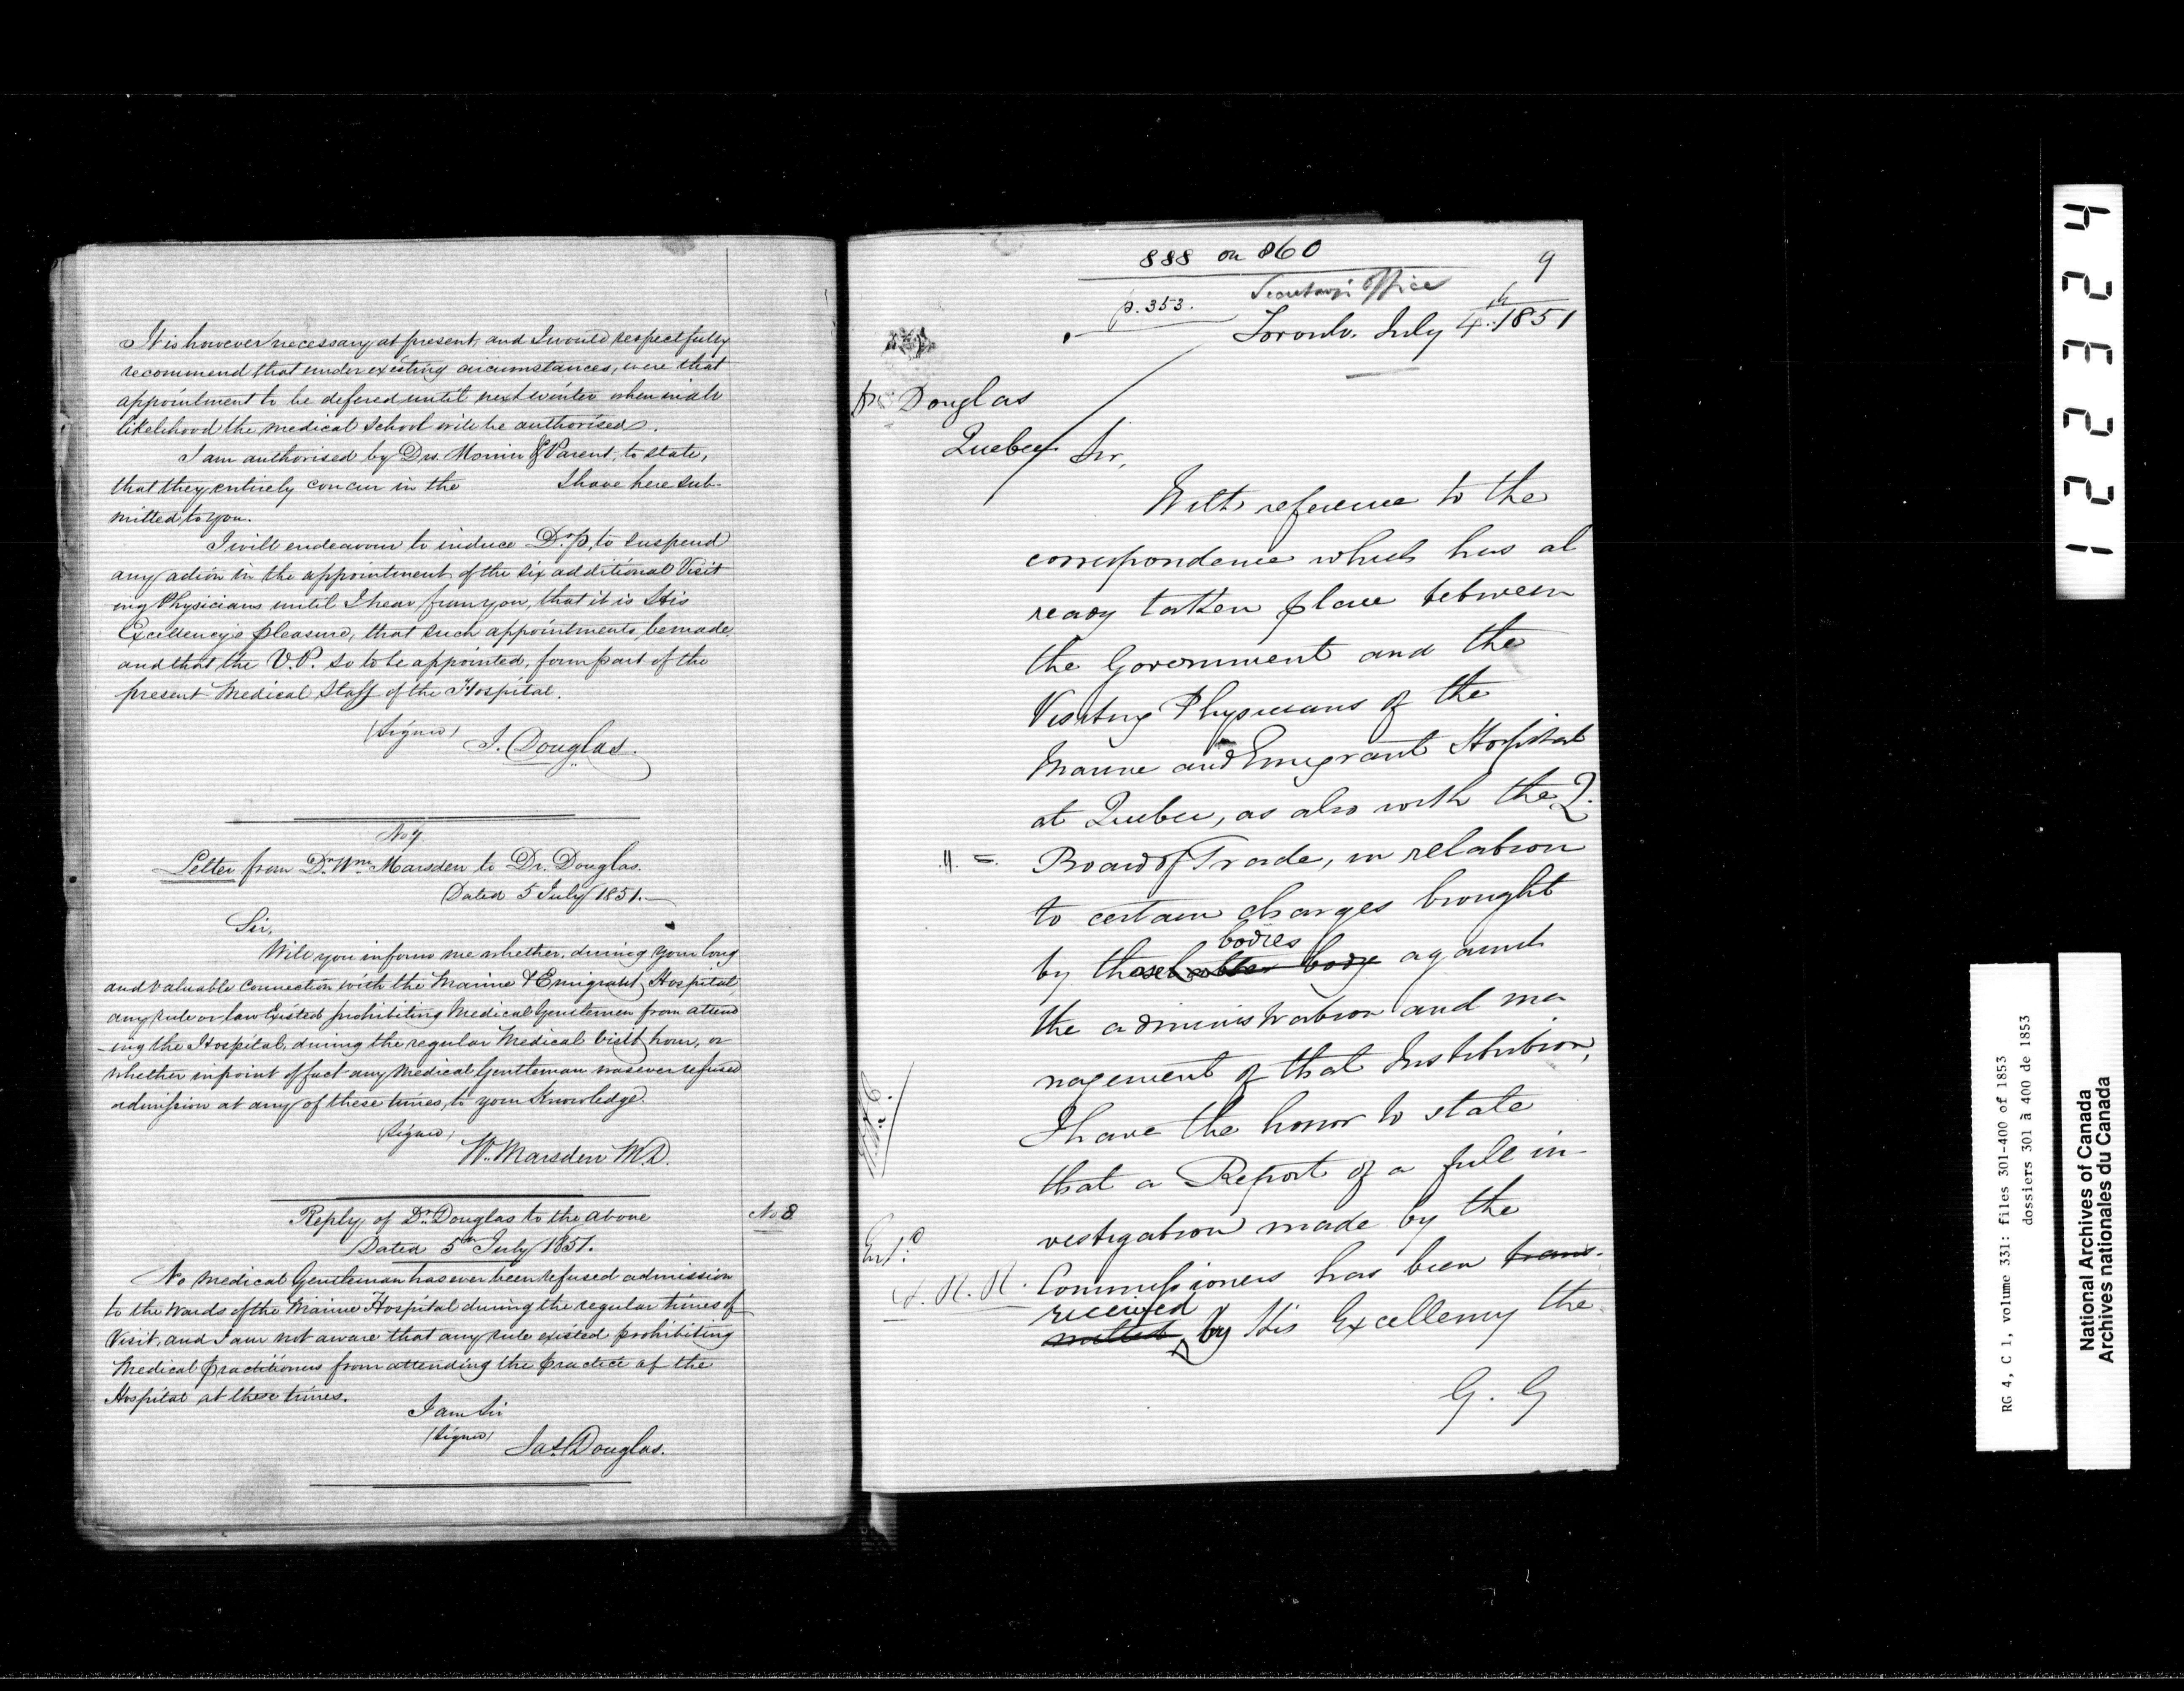 It is however necessary at present, and I would respectfully
recommend that under existing circumstances, were that
appointment to be defered until next winter when in all
likelihood the medical School will be authorised.
I am authorised by Drs. Morrin & Parent, to state,
that they entirely concur in the I have here sub-
mitted to you.
I will endeavour to induce to suspend
any action in the appointment of the six additional Visit
ing Physicians until I hear from you, that it is His
Excellency's pleasure, that such appointments be made
and that the V.P. so to be appointed, form part of the
present Medical Staff of the Hospital.
(Signed) J. Douglas.
No 7.
Letter from Dr. Wm. Marsden to Dr. Douglas.
Dated 5 July 1851.—
Sir,
Will you inform me whether, during your long
and valuable connection with the Marine & Emigrant Hospital,
any rule or law existed prohibiting Medical Gentlemen from attend
-ing the Hospital, during the regular Medical Visit hour, or
whether in point of fact any Medical Gentleman was ever refused
admission at any of these times, to your Knowledge.
(Signed)
Wm. Marsden M.D.
Reply of Dr. Douglas to the above
Dated 5th July 1851.
No 8
No Medical Gentleman has ever been refused admission
to the Wards of the Marine Hospital during the regular times of
Visit, and I am not aware that any rule existed prohibiting
Medical practitioners from attending the practice of the
Hospital at these times.
I am Sir
(Signed)
Jas. Douglas.
888 on 860
9
p. 353.
Secretary's Office
Toronto. July 4th. 1851
Dr. Douglas
Quebec
Sir,
With reference to the
correspondence which has al
ready taken place between
the Government and the
Visiting Physicians of the
Marine and Emigrant Hospital
at Quebec, as also with the Q.
Board of Trade, in relation
to certain charges brought
bodies
by those latter body against
the administration and ma
nagement of that Institution,
I have the honor to state
that a Report of a full in-
vestigation made by the
Entd.
Commissioners has been trans-
received
mitted by His Excellency the
G. G
1 2 2 3 2 4
RG 4, C 1, volume 331: files 301-400 of 1853
dossiers 301 à 400 de 1853
National Archives of Canada
Archives nationales du Canada